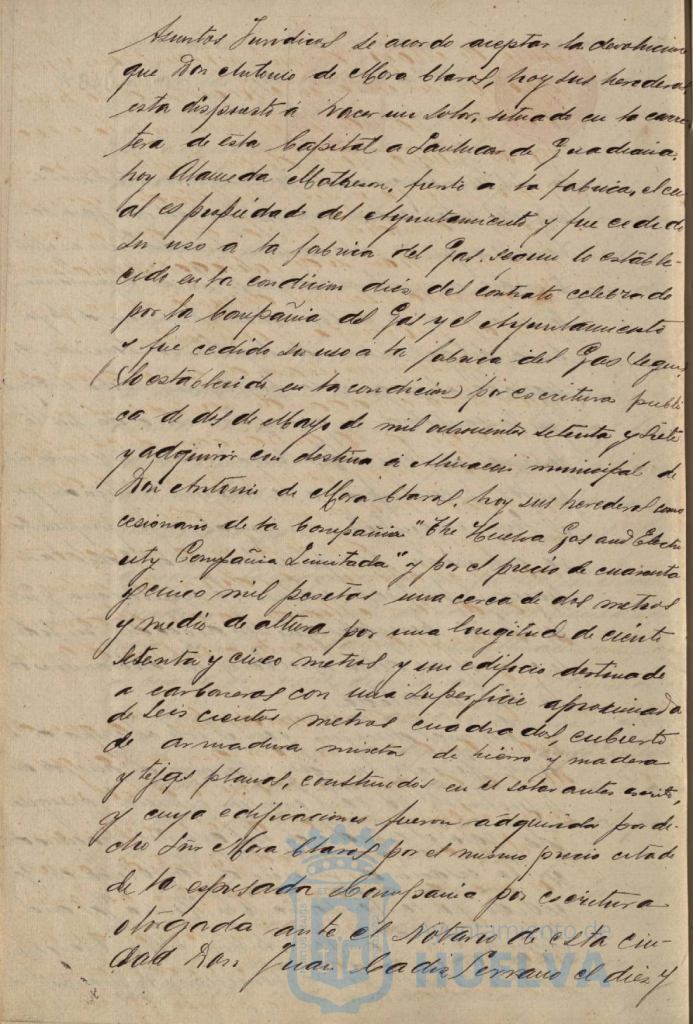 Asuntos Juridicos se acordo aceptar la devolucion
que Don Antonio de Mora Claros, hoy sus herederos
esta dispuesto á hacer un solar, situado en la carre
tera de esta Capital a Sanlucar de Guadiana,
hoy Alameda Matheson, frente á la fabrica, el cu
al es propiedad del Ayuntamiento y fue cedido
su uso á la fabrica del Gas. segun lo estable-
cido en la condicion diez del contrato celebrado
por la Compañia del Gas y el Ayuntamiento
y fue cedido su uso á la fabrica del Gas (segun
(lo establecido en la condicion) por escritura publi
ca de dos de Mayo de mil ochocientos setenta y siete
y adquirir con destino á municipal de
Don Antonio de Mora Claros, hoy sus herederos como
cesionario de la Compañia "The Huelva Gas and Electri
city Compañia Limitada" y por el precio de cuarenta
y cinco mil pesetas una cerca de dos metros
y medio de altura por una longitud de ciento
setenta y cinco metros y un edificio destinado
a carboneras con una superficie aproximada
de seis cientos metros cuadrados, cubierto
de armadura mixta de hierro y madera
y tejas planas, construidos en el solar antes escrito,
y cuyas edificaciones fueron adquiridas por di-
cho Sr. Mora Claros por el mismo precio citado
de la expresada Compañia por escritura
otorgada ante el Notario de esta ciu-
dad Don Juan Cadiz Serrano el diez y
Ayuntamiento de
HUELVA